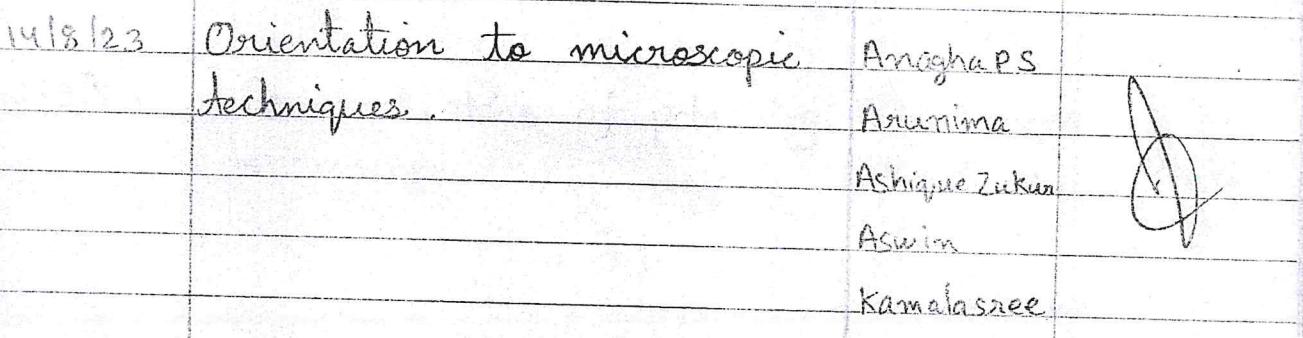 14/8/23 Orientation to microscopic Anagha P S
techniques. Arunima
Ashique Zukur
Aswin
Kamalasree